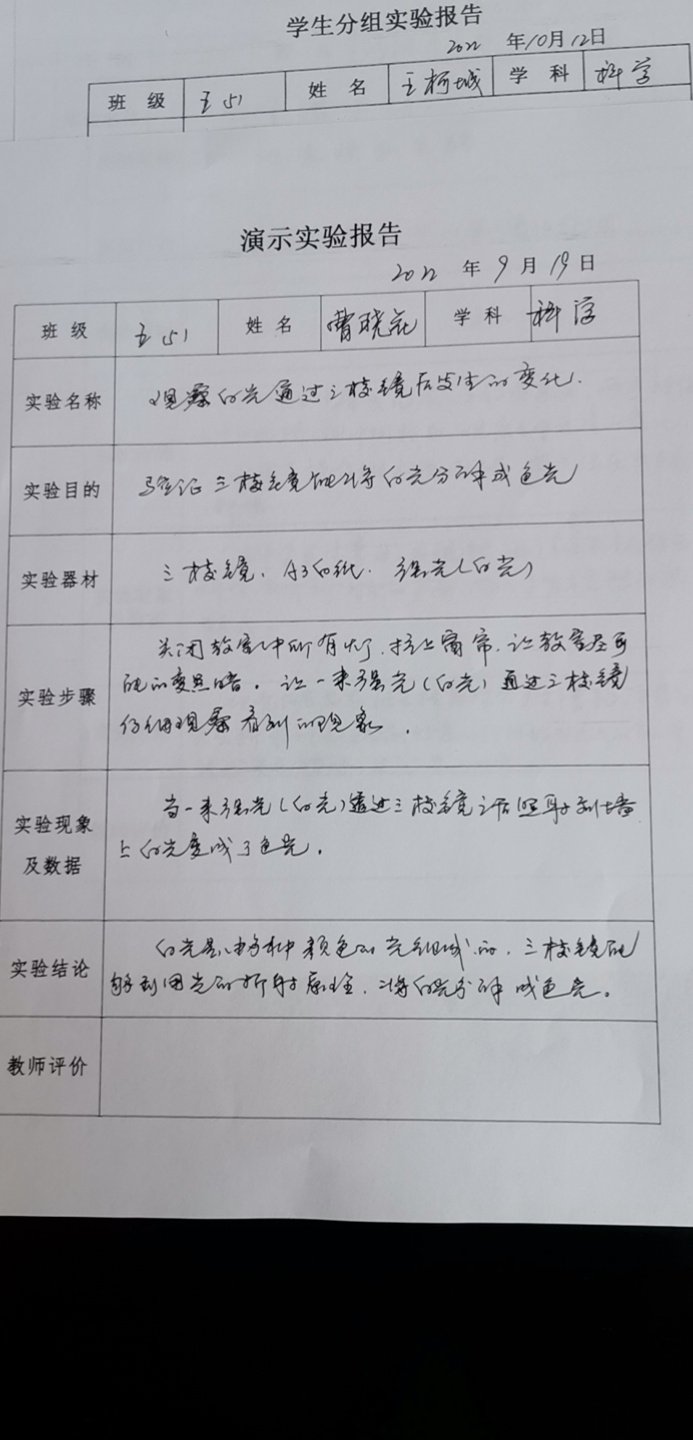 学生分组实验报告
2022 年10月12日
班 级 五51 姓 名 王柯城 学 科 科学
演示实验报告
2022 年 9 月 19 日
班 级 五51 姓 名 曹晓花 学 科 科学
实验名称 观察白光通过三棱镜后发生的变化.
实验目的 验证三棱镜能将白光分解成色光
实验器材 三棱镜、A3白纸. 强光(白光)
实验步骤 关闭教室中所有灯,拉上窗帘,让教室尽可
能的变黑暗。让一束强光(白光)通过三棱镜
仔细观察看到的现象.
实验现象
及数据
当一束强光(白光)透过三棱镜之后照射到墙
上白光变成了色光。
实验结论 白光是由多种颜色的光组成的,三棱镜能
够利用光的折射原理,将白光分解成色光。
教师评价